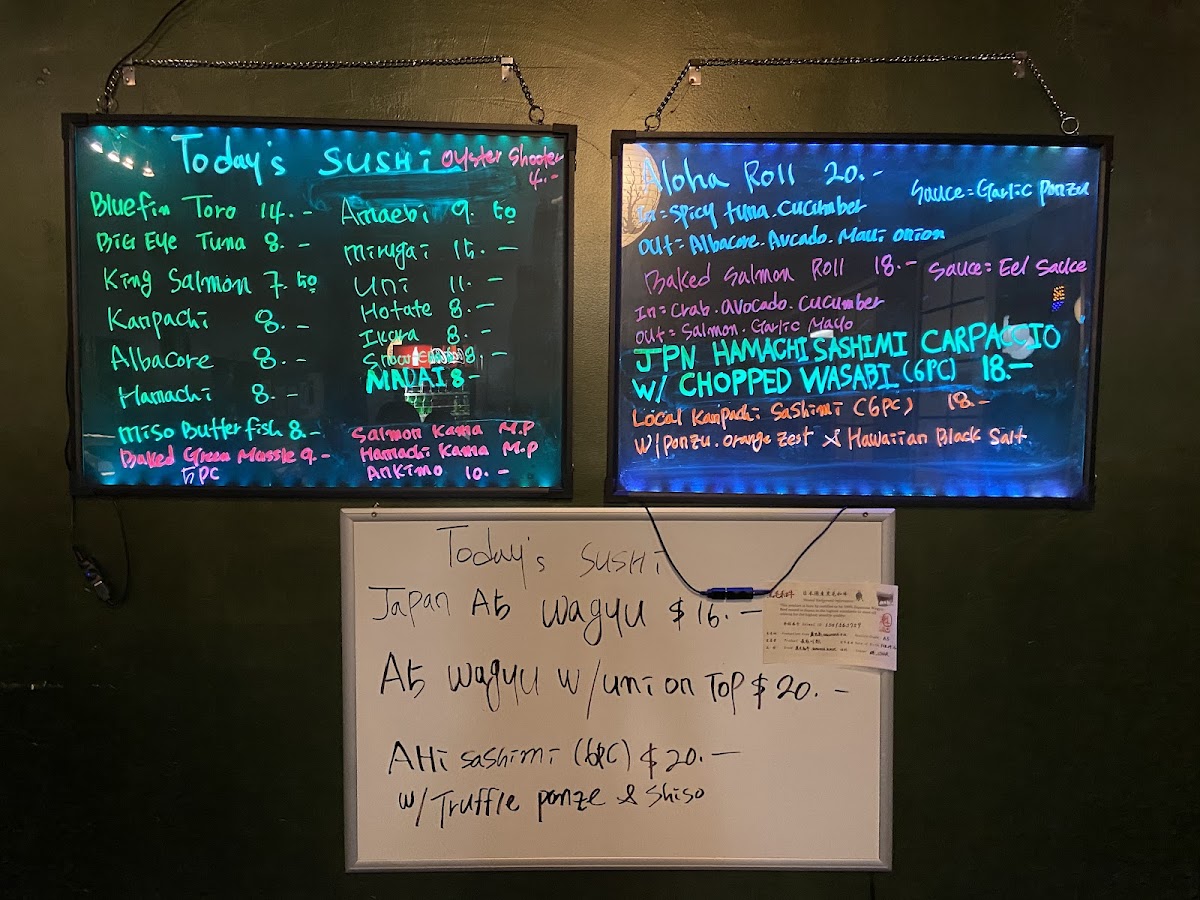 Today's SUSHi Oyster Shooter
4.-
Bluefin Toro 14.-
BiG Eye Tuna 8.-
King Salmon 7.50
Kanpachi 8.-
Albacore 8.-
Hamachi 8.-
Miso Butterfish 8.-
Baked Green Mussle 9.-
5PC
Amaebi 9.50
Mirugai 15.-
Uni 11.-
Hotate 8.-
Ikura 8.-
MADAI 8-
Salmon Kama M.P
Hamachi Kama M.P
Ankimo 10.-
Aloha Roll 20.-
Sauce=Garlic ponzu
In=Spicy tuna.cucumber
Out=Albacore.Avcado.Maui onion
Baked Salmon Roll 18.- Sauce=Eel Sauce
In=Crab.avocado.cucumber
out=Salmon.Garlic Mayo
JPN HAMACHI SASHIMI CARPACCIO
W/ CHOPPED WASABI (6PC) 18.-
Local Kanpachi Sashimi (6PC) 18.-
W/Ponzu.orange zest & Hawaiian Black Salt
Today's SUSHi
Japan A5 wagyu $16.-
A5 wagyu w/uni on Top $20.-
AHi sashimi (6PC) $20.-
w/Truffle ponze & shiso